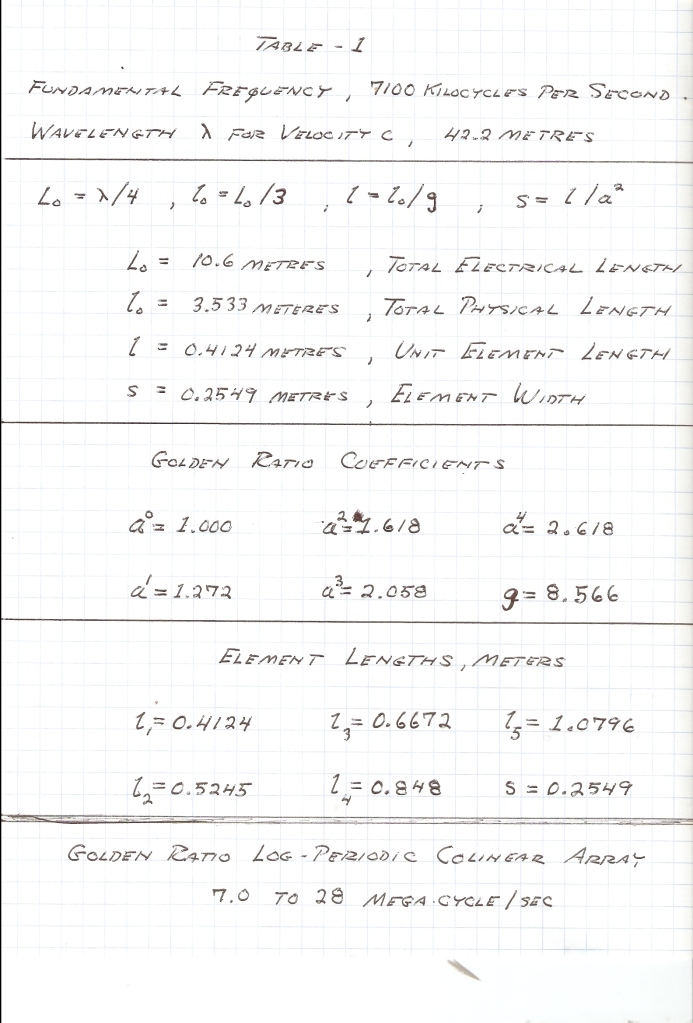 TABLE - 1
FUNDAMENTAL FREQUENCY, 7100 KILOCYCLES PER SECOND.
WAVELENGTH λ FOR VELOCITY C, 42.2 METRES
L₀ = λ/4 , l₀ = L₀/3 , l = l₀/g ; s = l/a²
L₀ = 10.6 METRES , TOTAL ELECTRICAL LENGTH
l₀ = 3.533 METERES , TOTAL PHYSICAL LENGTH
l = 0.4124 METRES , UNIT ELEMENT LENGTH
s = 0.2549 METRES , ELEMENT WIDTH
GOLDEN RATIO COEFFICIENTS
a⁰ = 1.000 a² = 1.618 a⁴ = 2.618
a¹ = 1.272 a³ = 2.058 g = 8.566
ELEMENT LENGTHS, METERS
l₁ = 0.4124 l₃ = 0.6672 l₅ = 1.0796
l₂ = 0.5245 l₄ = 0.848 s = 0.2549
GOLDEN RATIO LOG-PERIODIC COLINEAR ARRAY
7.0 TO 28 MEGA-CYCLE/SEC